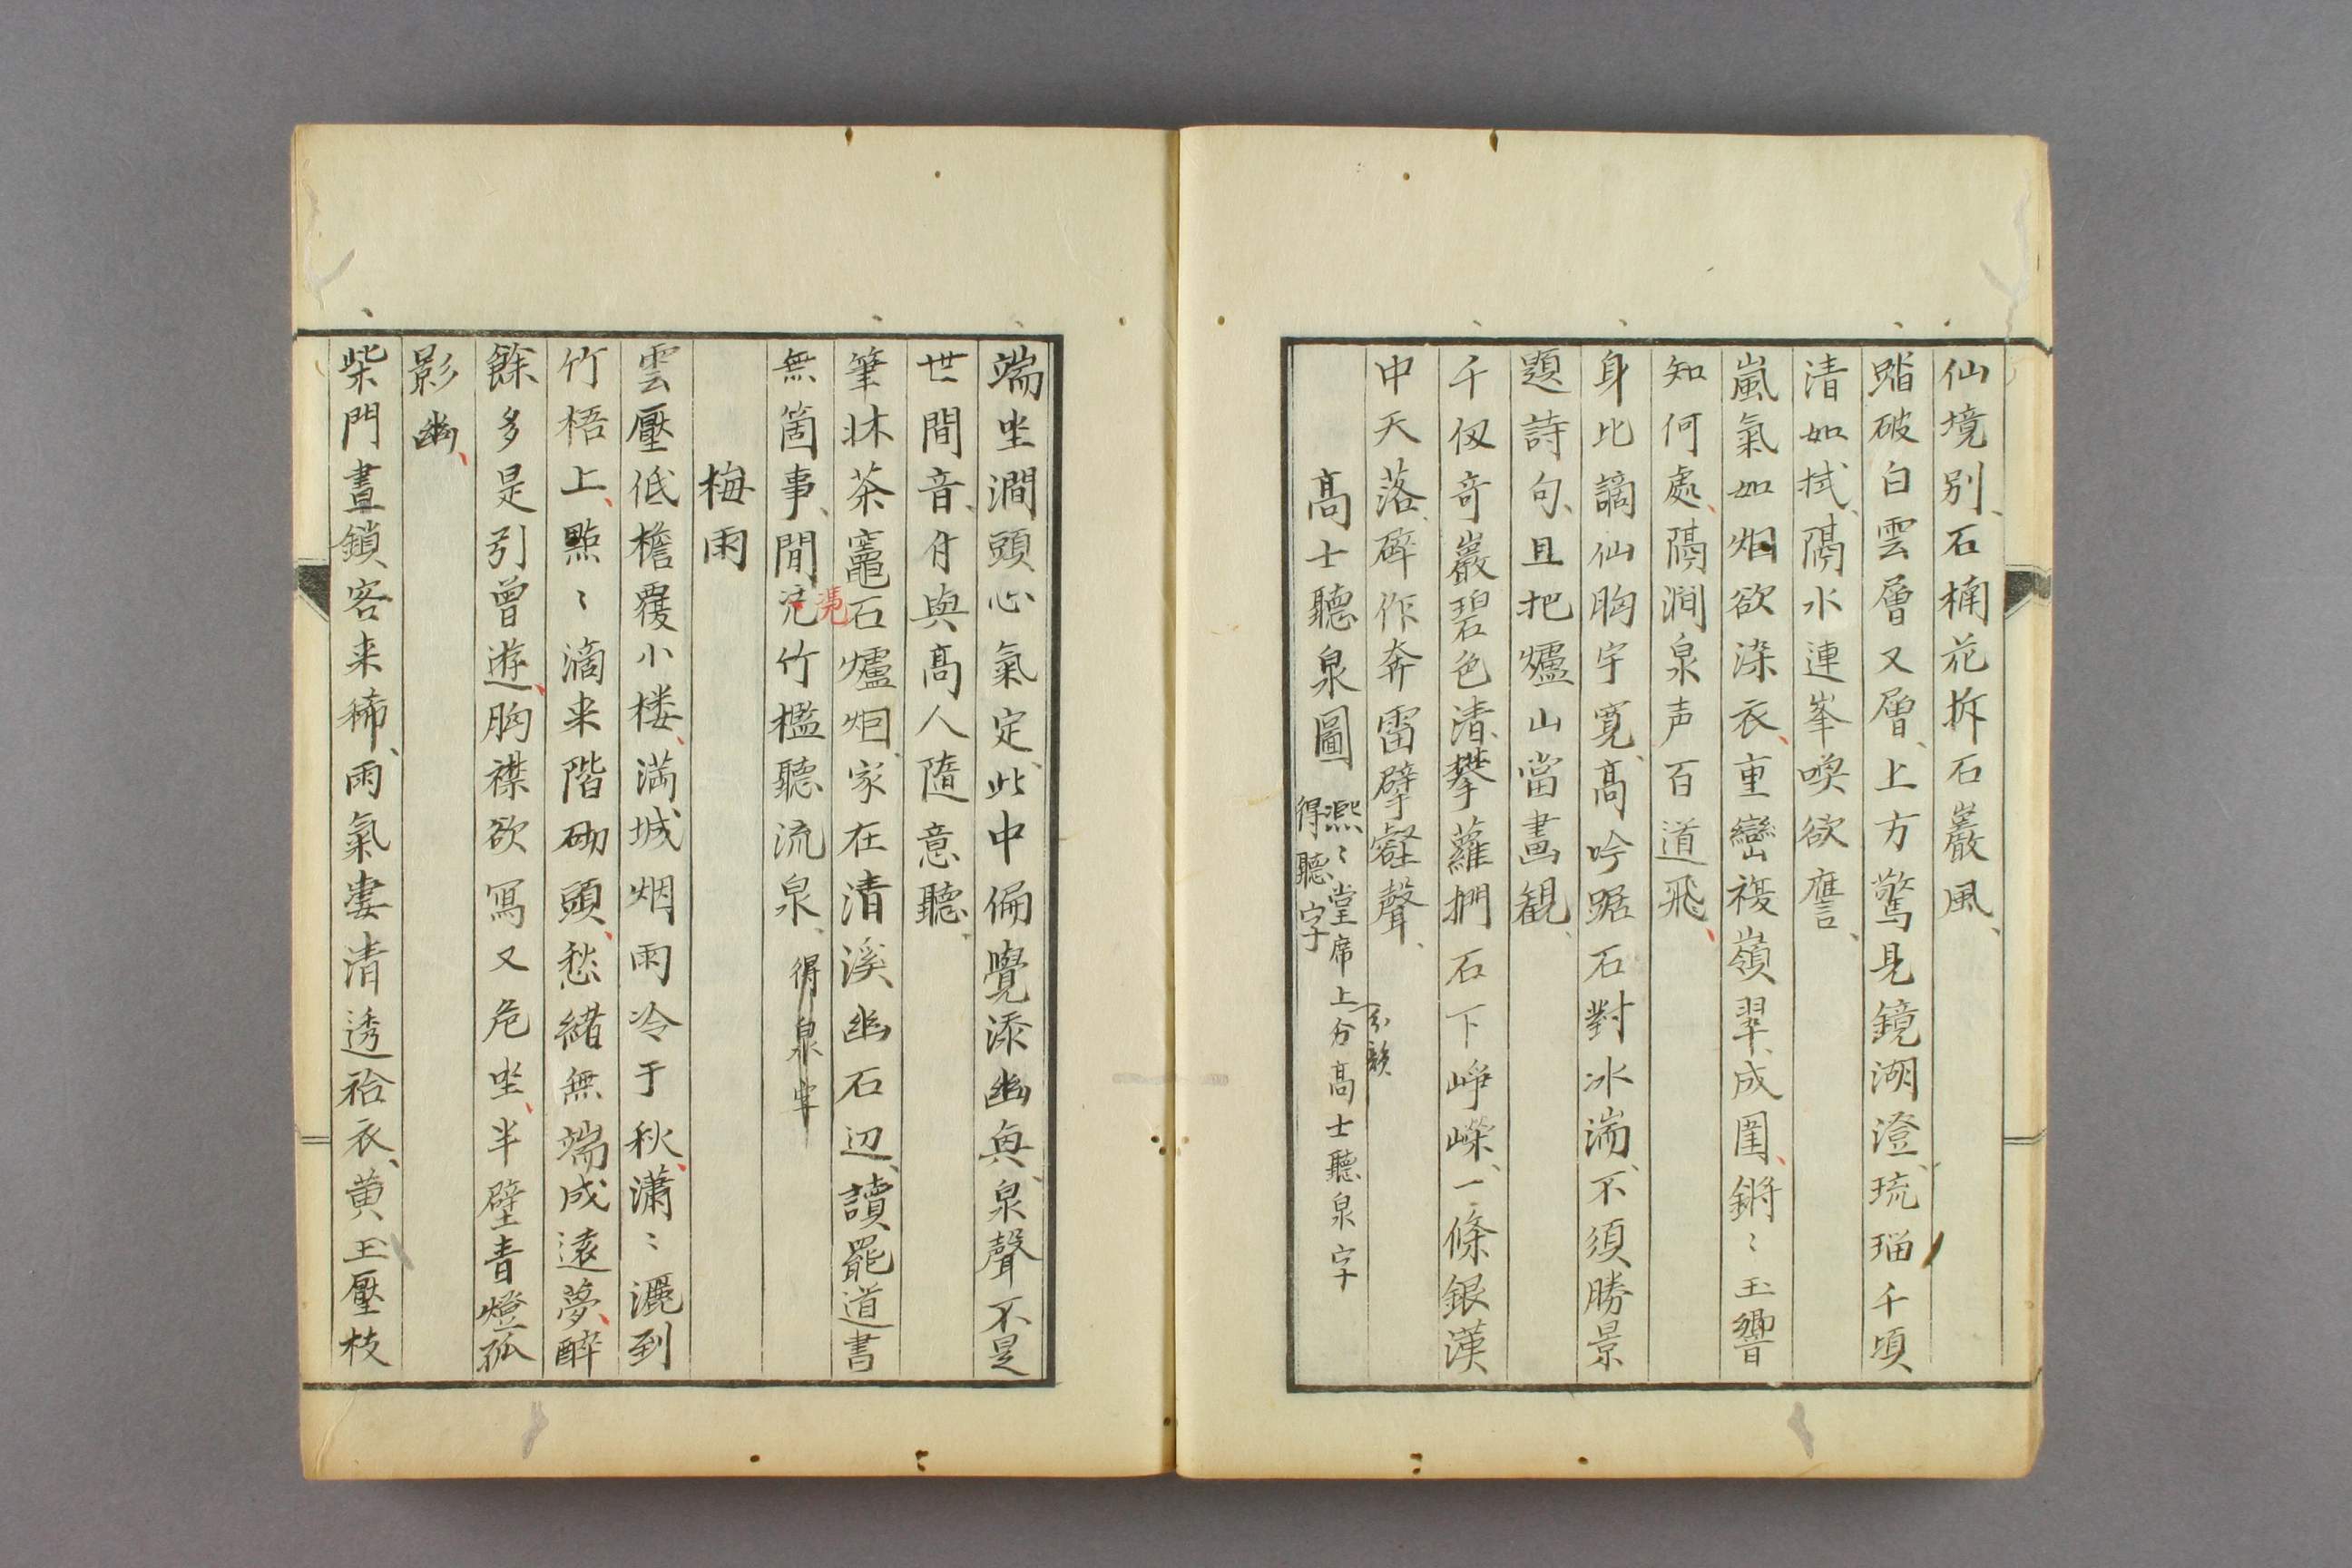 仙境別、石楠花拆石巖風、
踏破白雲層又層、上方驚見鏡湖澄、琉瑠千頃
清如拭、隔水連峯喚欲譍、
嵐氣如烟欲染衣、重巒複嶺翠成圍、鏘〻玉響
知何處、隔澗泉声百道飛、
身比謫仙胸宇寛、高吟踞石對氷湍、不須勝景
題詩句、且把爐山當畫観、
千仭奇巖碧色清、攀蘿捫石下崢嶸、一條銀漢
中天落、碎作奔雷擘壑聲、
高士聽泉圖 熙〻堂席上分高士聽泉字
分韻
得聽字
端坐澗頭心氣定、此中偏覺添幽興、泉聲不是
世間音、付與高人隨意聽、
筆牀茶竈石爐烟、家在清溪幽石辺、讀罷道書
無箇事、閒凭竹檻聽流泉、得泉字
凴
梅雨
雲壓低檐覆小楼、満城烟雨冷于秋、瀟〻灑到
竹梧上、點〻滴来階砌頭、愁緒無端成遠夢、醉
餘多是引曾遊、胸襟欲寫又危坐、半壁青燈孤
影幽、
柴門晝鎖客来稀、雨氣凄清透袷衣、黄玉壓枝